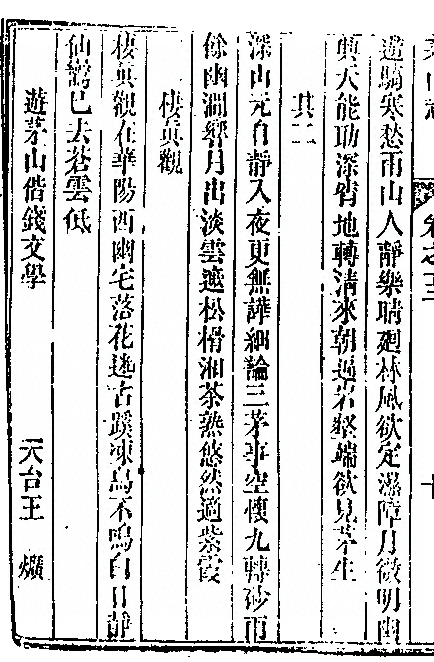 茅山志 卷之十三 十
遊騎寒愁雨山人靜樂晴迴林風欲定濕障月微明幽
興天能助深宵地轉清來朝過岩壑端欲見茅生
其二
深山元自靜入夜更無譁細論三茅事空懷九轉砂雨
餘幽澗響月出淡雲遮松榾湘茶熟悠然適紫霞
棲真觀
棲真觀在華陽西幽宅落花迷古蹊凍鳥不鳴白日靜
仙鶴已去蒼雲低
遊茅山偕錢文學 天台王爌